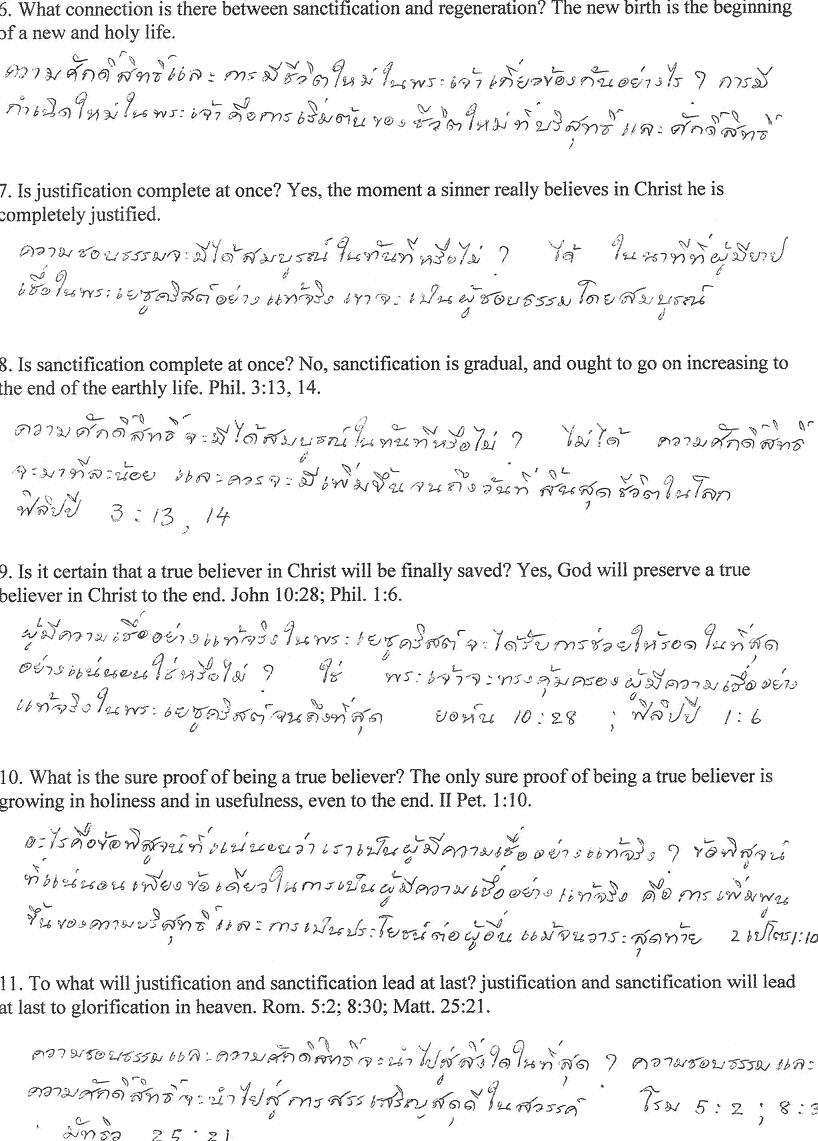 6. What connection is there between sanctification and regeneration? The new birth is the beginning
of a new and holy life.
ความศักดิ์สิทธิ์และการมีชีวิตใหม่ในพระเจ้าเกี่ยวข้องกันอย่างไร ? การมี
กำเนิดใหม่ในพระเจ้าคือการเริ่มต้นของชีวิตใหม่ที่บริสุทธิ์และศักดิ์สิทธิ์
7. Is justification complete at once? Yes, the moment a sinner really believes in Christ he is
completely justified.
ความชอบธรรมจะมีได้สมบูรณ์ในทันทีหรือไม่ ? ได้ ในนาทีที่ผู้มีบาป
เชื่อในพระเยซูคริสต์อย่างแท้จริง เขาจะเป็นผู้ชอบธรรมโดยสมบูรณ์
8. Is sanctification complete at once? No, sanctification is gradual, and ought to go on increasing to
the end of the earthly life. Phil. 3:13, 14.
ความศักดิ์สิทธิ์จะมีได้สมบูรณ์ในทันทีหรือไม่ ? ไม่ได้ ความศักดิ์สิทธิ์
จะมาทีละน้อย และควรจะมีเพิ่มขึ้นจนถึงวันที่สิ้นสุดชีวิตในโลก
ฟิลิปปี 3:13, 14
9. Is it certain that a true believer in Christ will be finally saved? Yes, God will preserve a true
believer in Christ to the end. John 10:28; Phil. 1:6.
ผู้มีความเชื่ออย่างแท้จริงในพระเยซูคริสต์จะได้รับการช่วยให้รอดในที่สุด
อย่างแน่นอนใช่หรือไม่ ? ใช่ พระเจ้าจะทรงคุ้มครองผู้มีความเชื่ออย่าง
แท้จริงในพระเยซูคริสต์จนถึงที่สุด ยอห์น 10:28 ; ฟิลิปปี 1:6
10. What is the sure proof of being a true believer? The only sure proof of being a true believer is
growing in holiness and in usefulness, even to the end. II Pet. 1:10.
อะไรคือข้อพิสูจน์ที่แน่นอนว่าเราเป็นผู้มีความเชื่ออย่างแท้จริง ? ข้อพิสูจน์
ที่แน่นอนเพียงข้อเดียวในการเป็นผู้มีความเชื่ออย่างแท้จริง คือ การเพิ่มพูน
ขึ้นของความบริสุทธิ์และการเป็นประโยชน์ต่อผู้อื่นแม้จนวาระสุดท้าย 2 เปโตร1:10
11. To what will justification and sanctification lead at last? justification and sanctification will lead
at last to glorification in heaven. Rom. 5:2; 8:30; Matt. 25:21.
ความชอบธรรมและความศักดิ์สิทธิ์จะนำไปสู่สิ่งใดในที่สุด ? ความชอบธรรมและ
ความศักดิ์สิทธิ์จะนำไปสู่การสรรเสริญสดุดีในสวรรค์ โรม 5:2 ; 8:3
มัทธิว 25:21